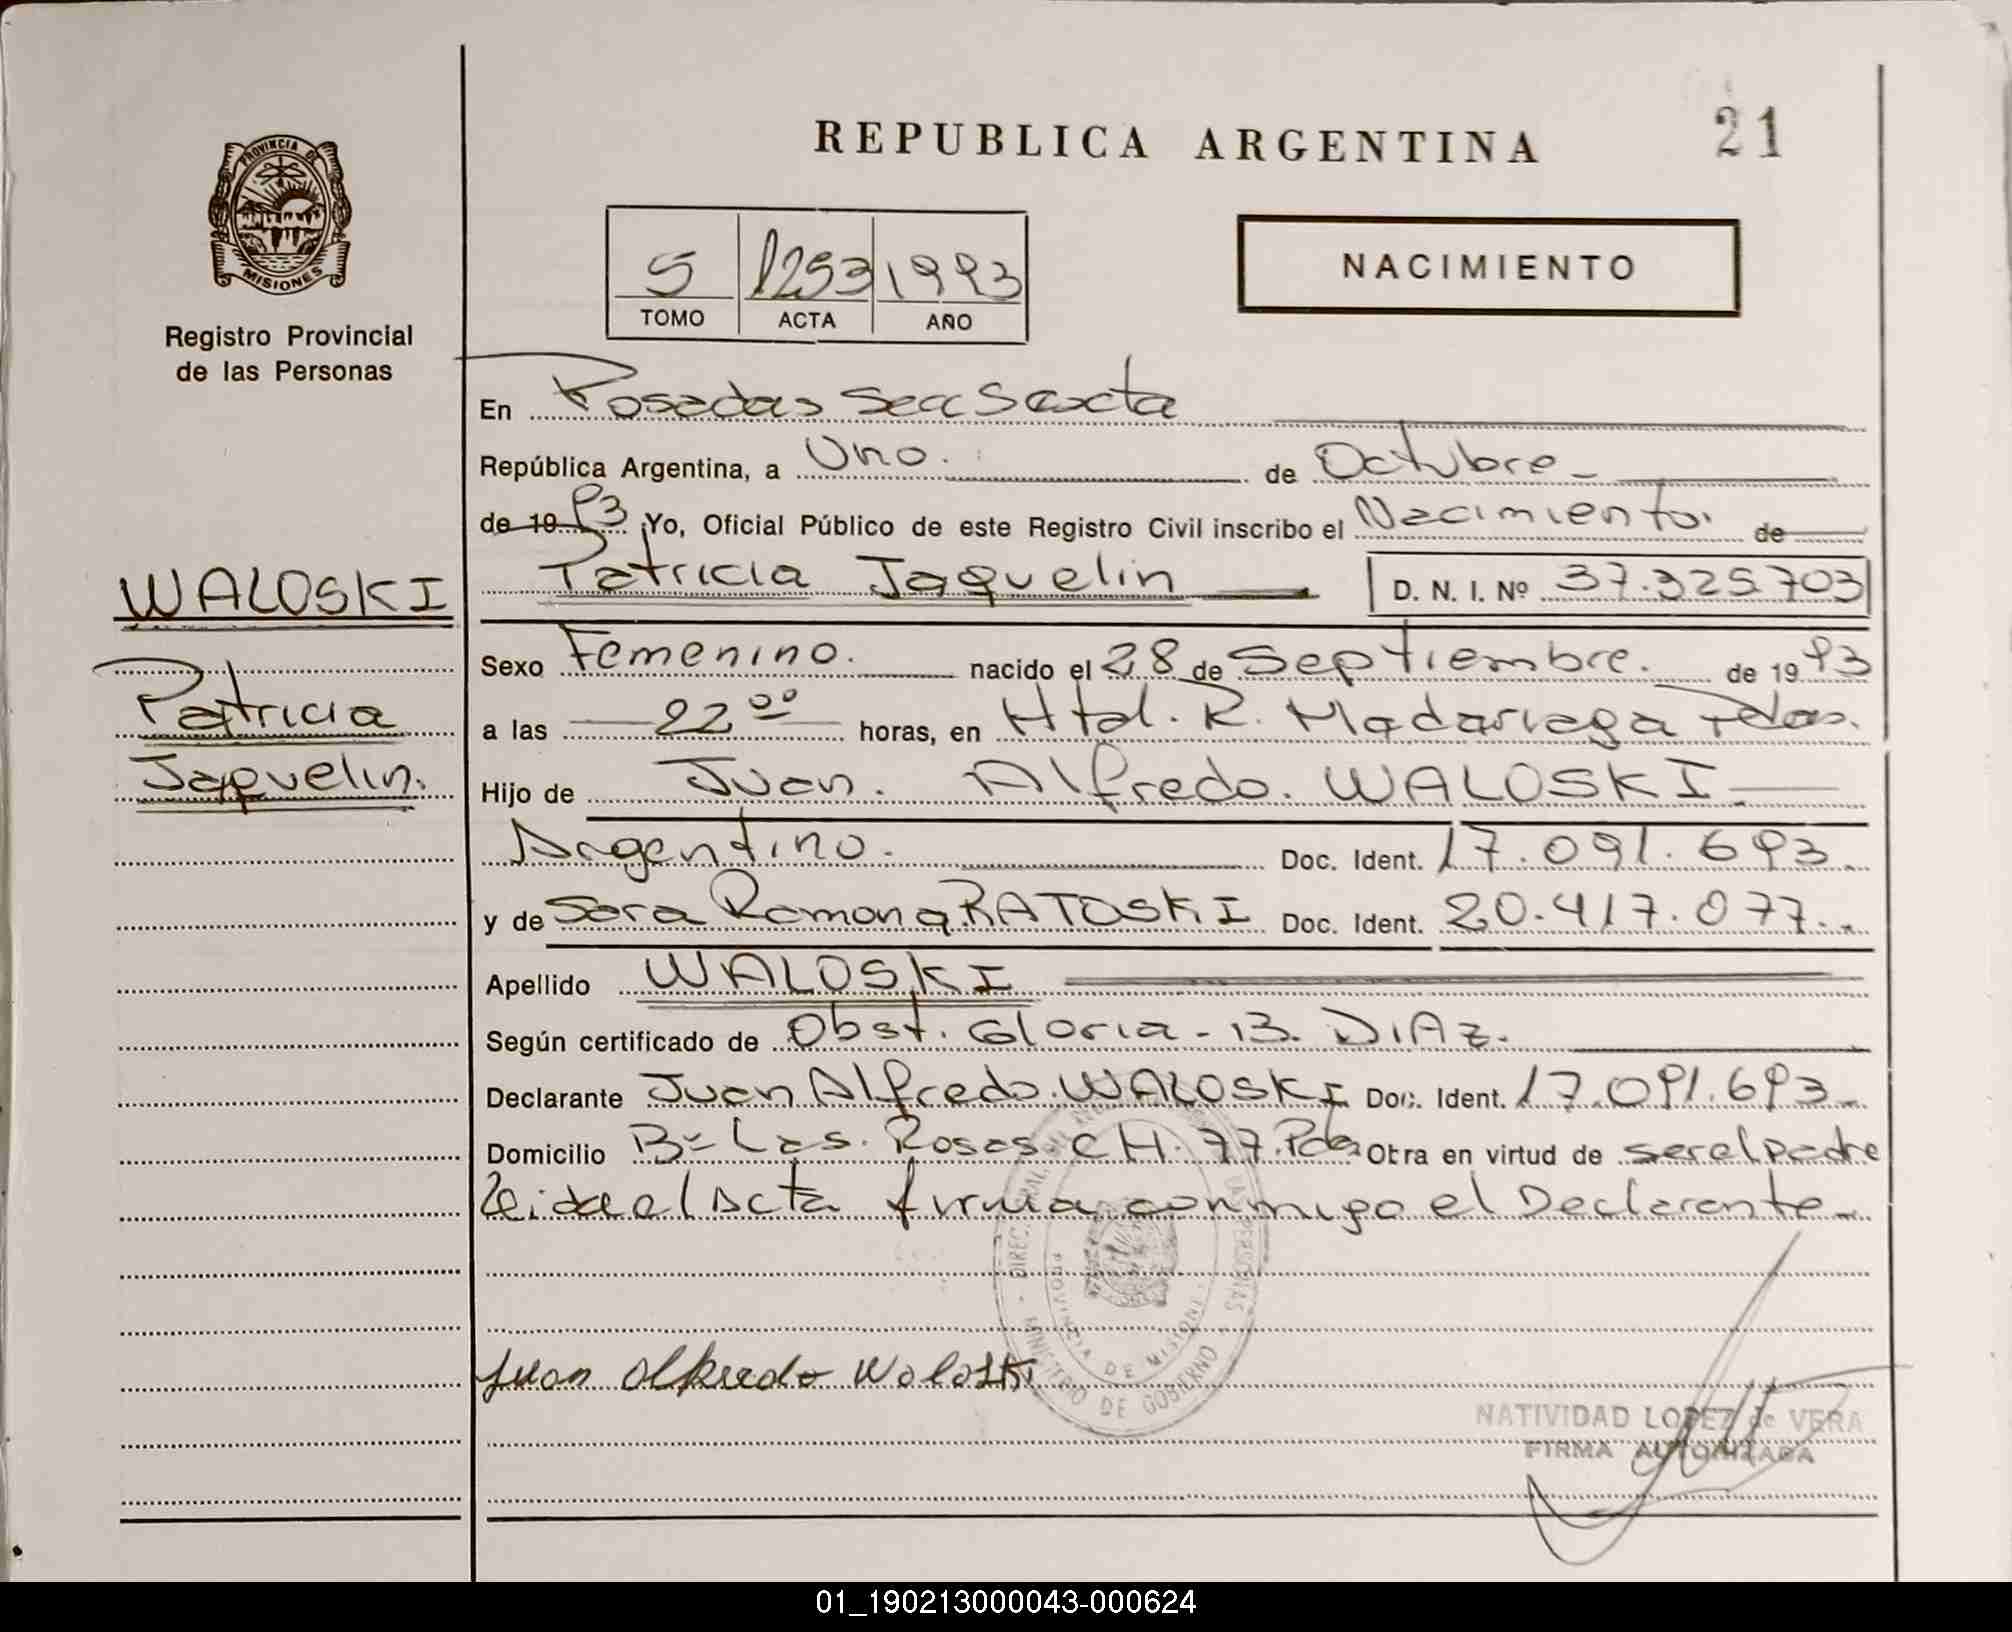 REPUBLICA ARGENTINA
21
PROVINCIA DE
MISIONES
Registro Provincial
de las Personas
5 1253 1993
TOMO ACTA AÑO
NACIMIENTO
En Posadas Secc Sexta
República Argentina, a Uno. de Octubre
de 19 93 Yo, Oficial Público de este Registro Civil inscribo el Nacimiento. de
Patricia Jaquelin D. N. I. Nº 37.325.703
WALOSKI
Patricia
Jaquelin.
Sexo Femenino. nacido el 28 de Septiembre. de 19 93
a las 22 00 horas, en Htal. R. Madariaga Pdas.
Hijo de Juan. Alfredo. WALOSKI
Argentino. Doc. Ident. 17.091.693
y de Sara Ramona RATOSKI Doc. Ident. 20.417.077
Apellido WALOSKI
Según certificado de Obst. Gloria - B. DIAZ.
Declarante Juan Alfredo. WALOSKI Doc. Ident. 17.091.693
Domicilio Bº Las. Rosas. CH. 77. Pdas Otra en virtud de ser el padre
Leida el Acta firma conmigo el Declarante
PROVINCIA DE MISIONES
MINISTRO DE GOBIERNO
Juan Alfredo Waloski
NATIVIDAD LOPEZ de VERA
FIRMA AUTORIZADA
01_190213000043-000624